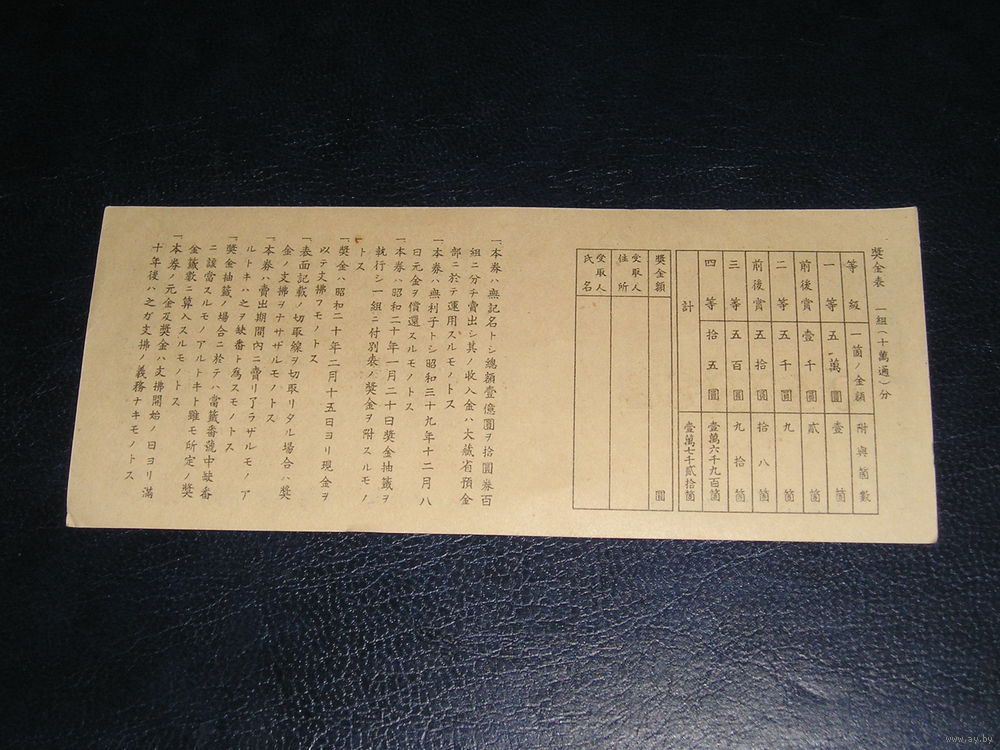 獎金表　一組(十萬通)分
等級　一箇ノ金額　附與箇數
一等　五萬圓　壹箇
前後賞　壹千圓　貳箇
二等　五千圓　九箇
前後賞　五拾圓　拾八箇
三等　五百圓　九拾箇
四等　拾五圓　壹萬六千九百箇
計　壹萬七千貳拾箇
獎金額　圓
受取人住所
受取人氏名
一本券ハ無記名トシ總額壹億圓ヲ拾圓券百
組ニ分チ賣出シ其ノ收入金ハ大藏省預金
部ニ於テ運用スルモノトス
一本券ハ無利子トシ昭和三十九年十二月八
日元金ヲ償還スルモノトス
一本券ハ昭和二十年一月二十日獎金抽籤ヲ
執行シ一組ニ付別表ノ獎金ヲ附スルモノ
トス
一獎金ハ昭和二十年二月十五日ヨリ現金ヲ
以テ支拂フモノトス
一表面記載ノ切取線ヲ切取リタル場合ハ獎
金ノ支拂ヲナサザルモノトス
一本券ハ賣出期間內ニ賣リ了ラザルモノア
ルトキハ之ヲ缺番ト爲スモノトス
一獎金抽籤ノ場合ニ於テハ當籤番號中缺番
ニ該當スルモノアルトキト雖モ所定ノ獎
金籤數ニ算入スルモノトス
一本券ノ元金及獎金ハ支拂開始ノ日ヨリ滿
十年後ハ之ガ支拂ノ義務ナキモノトス
www.ay.by